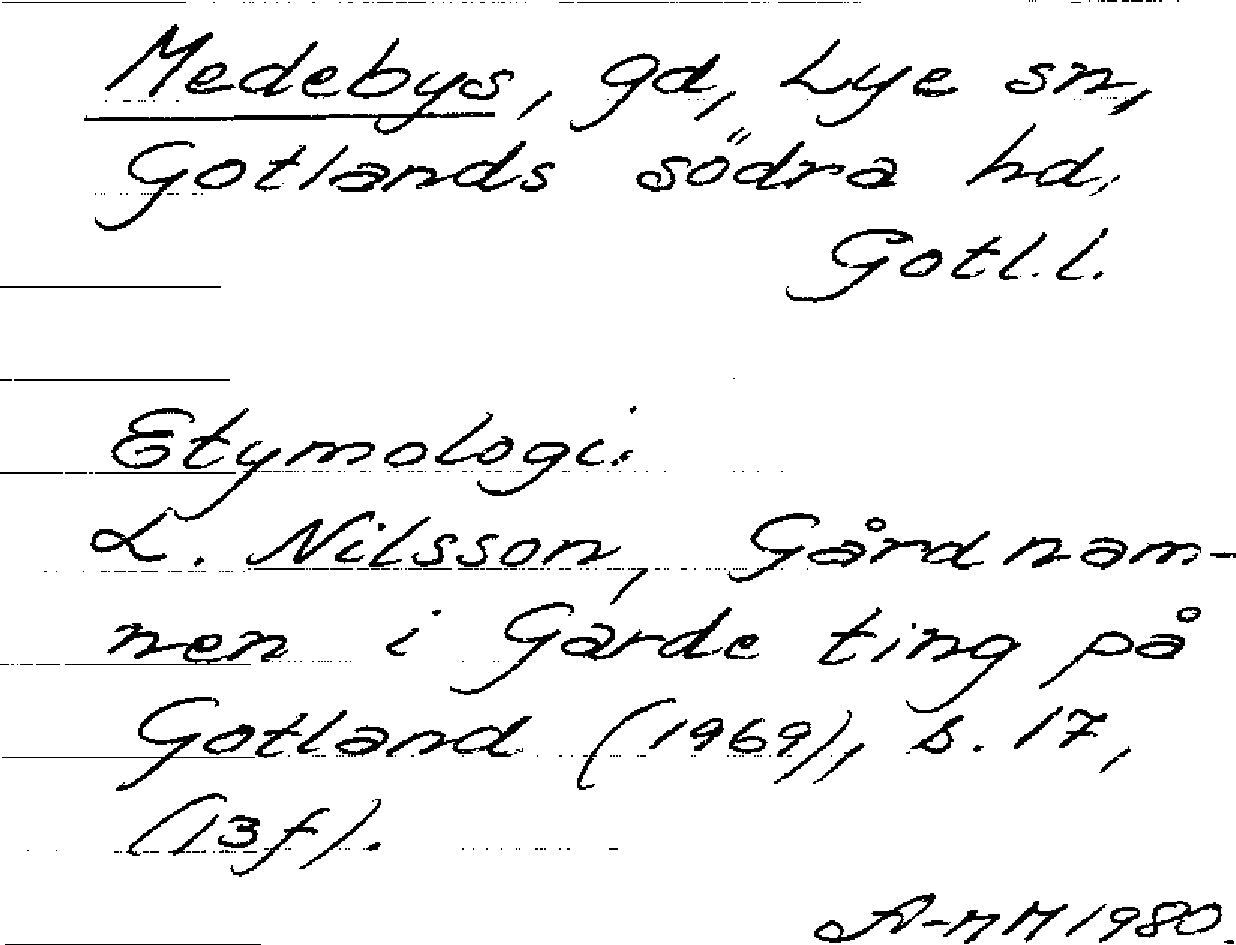 Medebys, gd, Lye sn,
Gotlands södra hd,
Gotl.l.
Etymologi:
L. Nilsson, Gårdnam-
nen i Garde ting på
Gotland (1969), s. 17,
(13f).
A-MM 1980.